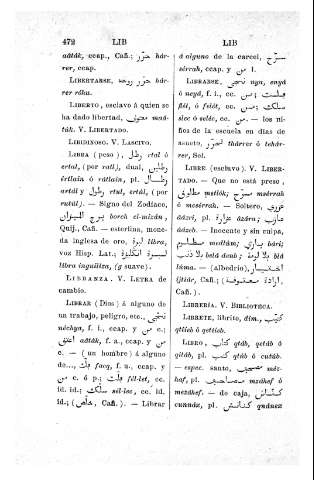 472 LIB LIB
aâták, ccap., Cañ.; حرّر hár-
rer, ccap.
LIBERTARSE, حرّر روحه hárr-
er ráhu.
LIBERTO, esclavo á quien se
ha dado libertad,
V. LIBERTADO.
LIBIDINOSO. V. LASCIVO.
LIBRA (peso), رطل rtal ó
ertal, (por ratl), dual, رطلين
értlain ó rátlain, pl. رطال
artál y رطول rtul, ertúl, (por
rutúl). — Signo del Zodíaco,
برج الميزان borch el-mizán,
Quij., Cañ. — esterlina, mone-
da inglesa de oro, ليبرة libra,
voz Hisp. Lat.; ليبرة انكليزة
libra inguilíza, (g suave).
LIBRANZA. V. LETRA de
cambio.
LIBRAR (Dios) á alguno de
un trabajo, peligro, etc., نجّى
néchyn, f. i., ccap. y من c.;
اعتق aâták, f. a., ccap. y من
c. — (un hombre) á alguno
de..., فكّ facq, f. u., ccap. y
من c. ó p.; فلت fél-let, cc.
id. id.; سلّك sél-lec, cc. id.
id.; (خلّص, Cañ.). — Librar
á alguno de la carcel, سرّح
sérrah, ccap. y من l.
LIBRARSE, نجى nya, enyá
ó neyá, f. i., cc. من; فلت
flét, ó felét, cc. من; سلك
slec ó seléc, cc. من. — los ni-
ños de la escuela en dias de
asueto, تحرّر thárrer ó tehár-
rer, Sol.
LIBRE (esclavo). V. LIBER-
TADO. — Que no está preso,
مطلوق mstlók; مسرّح msérrah
ó mesérrah. — Soltero, عزري
ázeri, pl. عزارة ázára; عازب
âázeb. — Inocente y sin culpa,
مظلوم medlúm; باري bári;
بلا دنب belá denb; بلا لومة blá
láma. — (Albedrío), اختيار
ijtiár, Cañ.; (ارادة معتوقة,
Cañ.).
LIBRERÍA. V. BIBLIOTECA.
LIBRETE, librito, dim., كتيّب
qtiíeb ó qetíeb.
LIBRO, كتاب qtáb, qetáb ó
qitáb, pl. كتب qtúb ó cutúb.
— espec. santo, مصحف méz-
haf, pl. مصاحف mzáhaf ó
mezáhaf. — de caja, كنّاش
cennáx, pl. كنانش qnánex